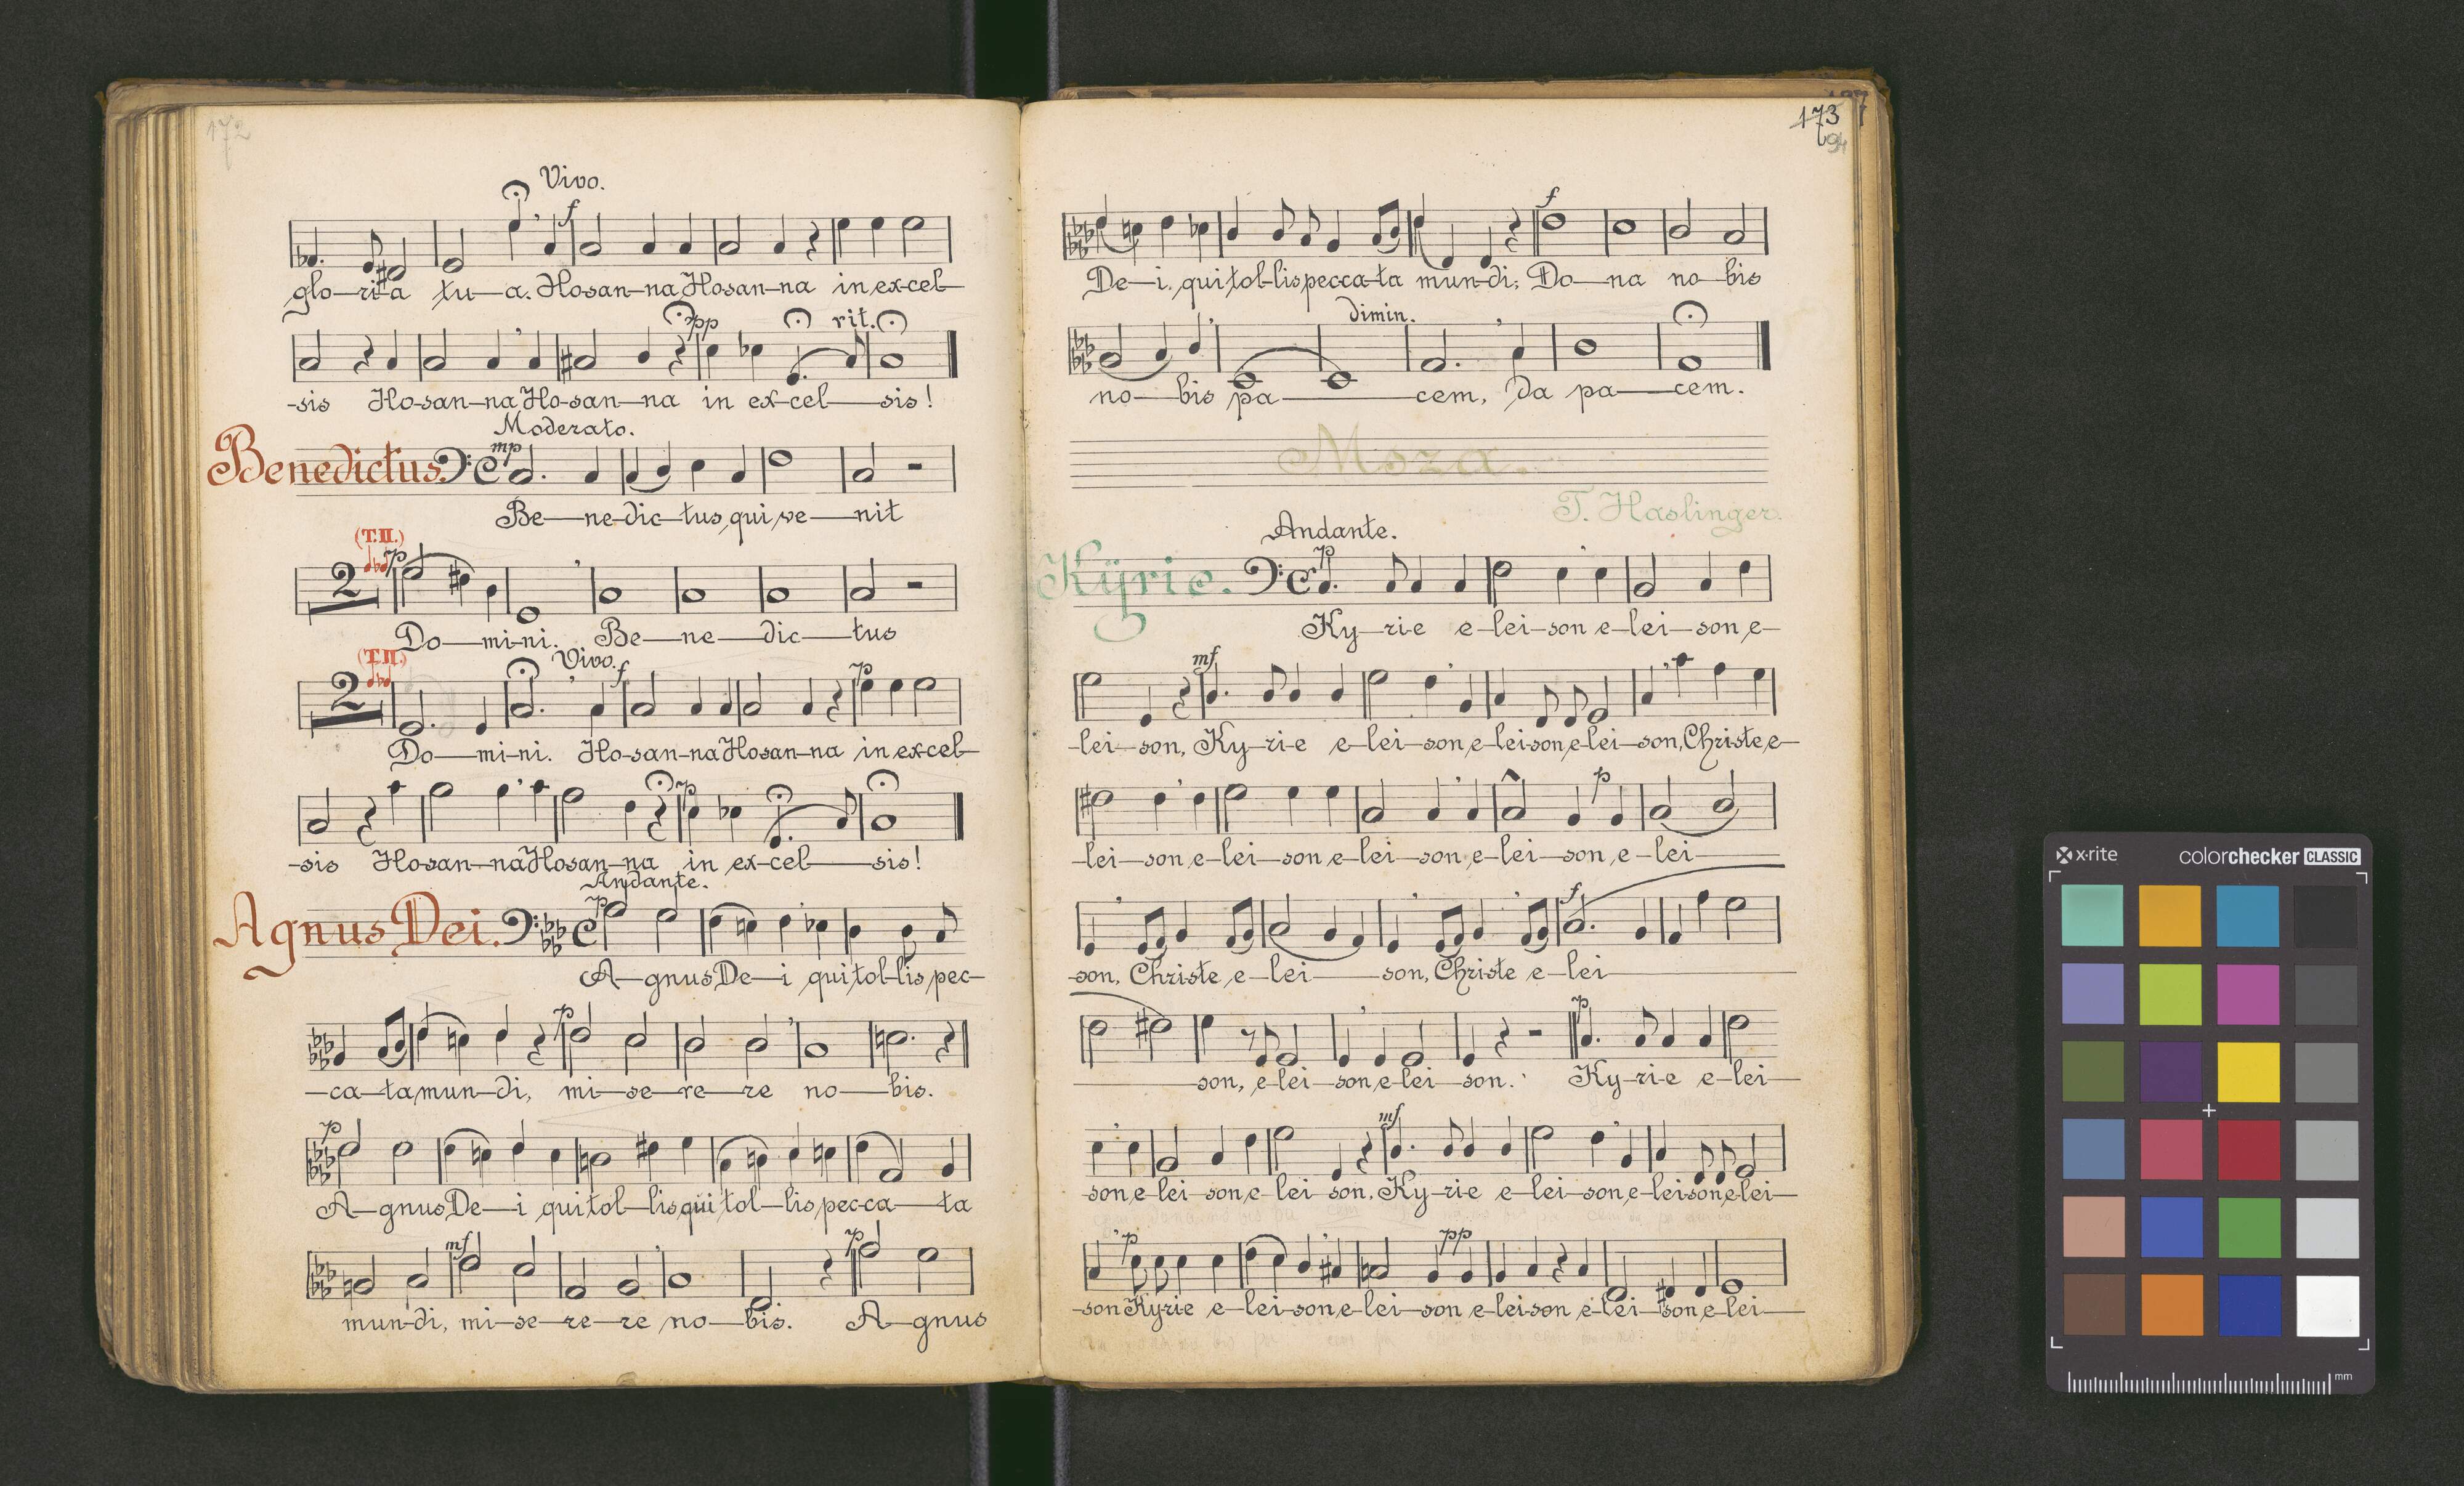 172
Vivo.
f
glo—ri—a tu—a. Ho-san—na Ho-san—na in ex-cel—
pp rit.
-sis Ho-san—na Ho-san—na in ex-cel—sis!
Moderato.
Benedictus. mp
Be—ne-dic—tus, qui ve—nit
(T.II.)
2 p
Do—mi-ni. Be—ne—dic—tus
(T.II.) Vivo.
2 f p
Do—mi-ni. Ho-san—na Ho-san—na in ex-cel—
p
-sis Ho-san—na Ho-san—na in ex-cel—sis!
Andante.
Agnus Dei. p
A—gnus De—i qui tol-lis pec—
p
—ca—ta mun—di, mi—se—re—re no—bis.
p
A—gnus De—i qui tol—lis qui tol—lis pec-ca—ta
mf p
mun-di, mi—se—re—re no—bis. A—gnus
173
94
f
De—i. qui tol-lis pec-ca-ta mun-di; Do—na no—bis
dimin.
no—bis pa—cem, Da pa—cem.
Msza.
T. Haslinger.
Andante.
Kÿrie. p
Ky—ri-e e-lei-son e-lei—son e—
mf
-lei—son, Ky—ri-e e-lei—son, e-lei-son, e-lei—son, Christe, e—
p
-lei—son, e-lei—son, e-lei—son, e-lei—son, e-lei—
f
-son, Christe, e-lei—son, Christe e-lei—
p
—son, e-lei—son, e-lei—son. Ky—ri-e e-lei—
mf
-son, e-lei-son, e-lei son, Ky—ri-e e-lei—son, e-lei-son, e-lei—
p pp
-son Kyrie e-lei-son, e-lei—son e-lei-son e-lei—son, e-lei—
x-rite colorchecker CLASSIC
mm